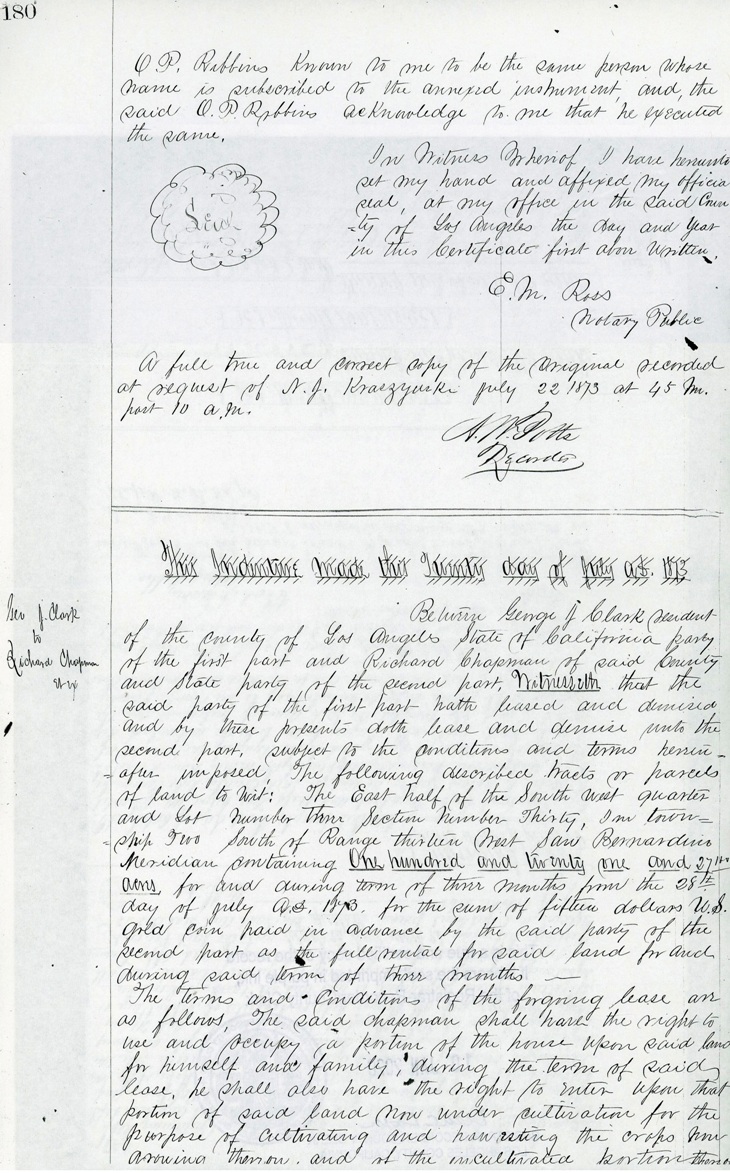 180
O. P. Robbins Known to me to be the same person whose
name is subscribed to the annexed instrument and, the
said O. P. Robbins acknowledge to me that he executed
the same.
In Witness Whereof, I have hereunto
set my hand and affixed my officia
seal, at my office in the said Coun
-ty of Los Angeles the Day and Year
in this Certificate first above Written.
Seal
E. M. Ross
Notary Public
A full true and correct copy of the Original recorded
at request of N. J. July 22 1873 at 45 M.
past 10 a.m.
A. W. Potts
Recorder
This Indenture made this Twenty day of July A.D. 1873
Geo J. Clark
to
Richard Chapman
et ux
Between George J Clark resident
of the county of Los Angeles State of California party
of the first part and Richard Chapman of said County
and State party of the second part, Witnesseth that the
said party of the first part hath leased and demised
and by these presents doth lease and demise unto the
second part, subject to the conditions and terms herein-
-after imposed, The following described tracts or parcels
of land to Wit: The East half of the South West quarter
and Lot Number three Section Number Thirty, In town=
-ship Two South of Range thirteen West San Bernardino
Meridian containing One hundred and twenty one and 27
acres, for and during term of three months from the 28th
day of July A.D. 1873. for the sum of fifteen dollars U.S.
gold coin paid in advance by the said party of the
second part as the full rental for said land for and
during said term of three months —
The terms and Conditions of the forgoing lease are
as follows, The said Chapman shall have the right to
use and occupy a portion of the house upon said land
for himself and family, during the term of said
lease, he shall also have the right to enter upon that
portion of said land now under cultivation for the
purpose of cultivating and harvesting the crops now
growing thereon. and of the uncultivated portion